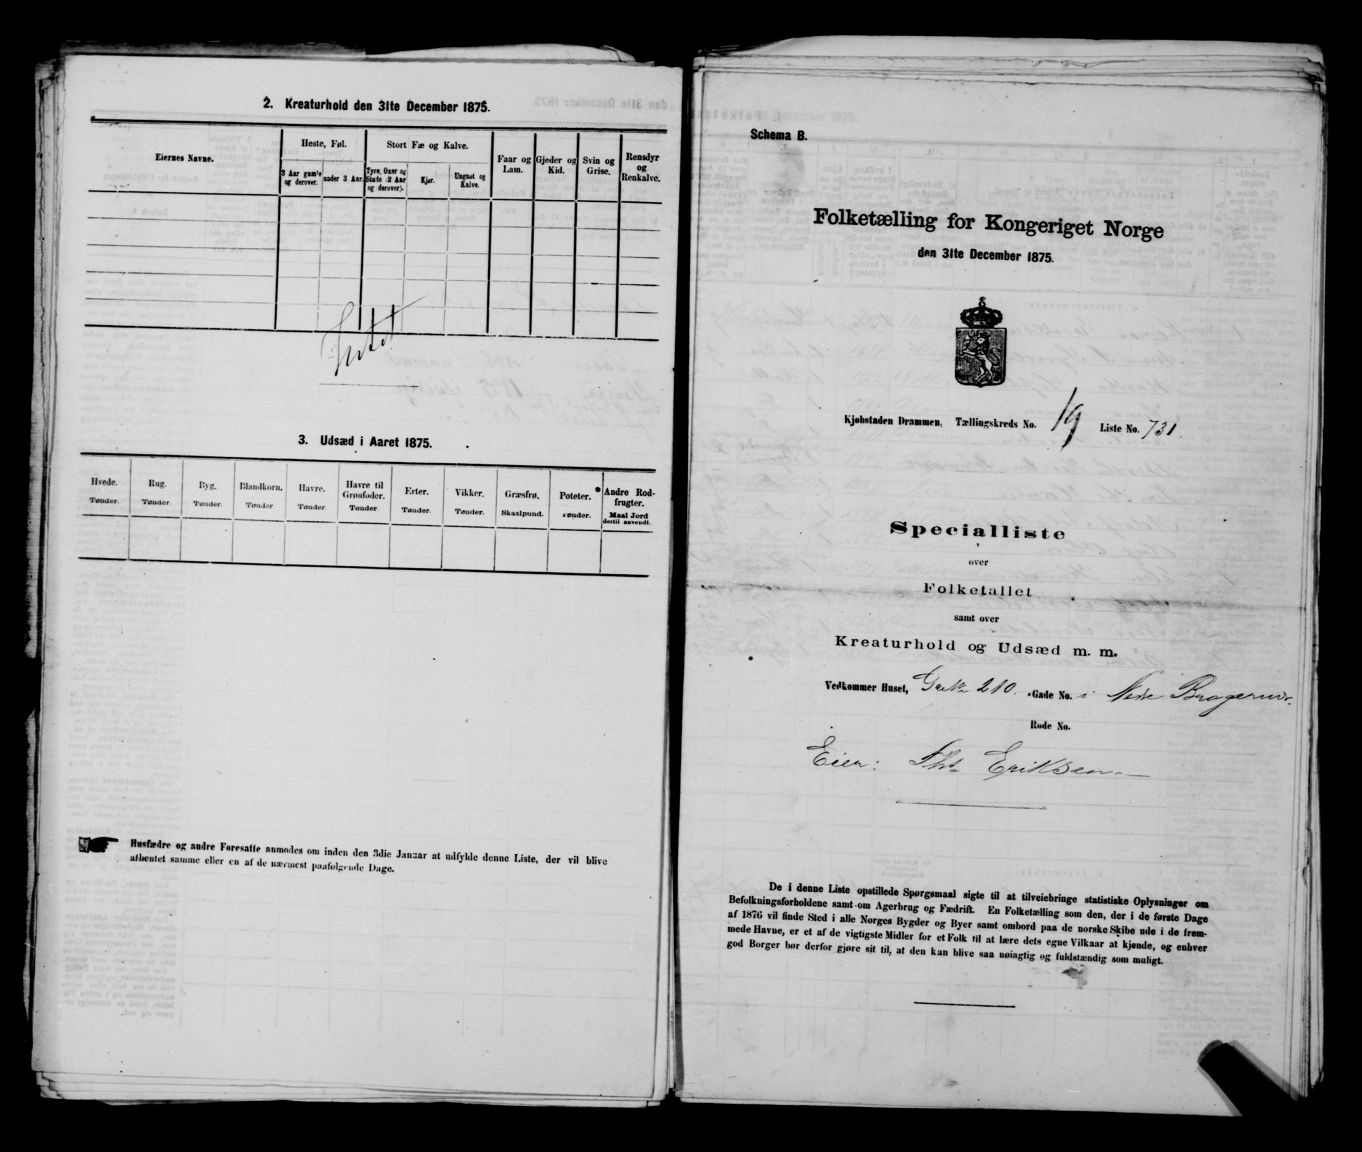 2. Kreaturhold den 31te December 1875.
Eiernes Navne.
Heste, Føl.
Stort Fæ og Kalve.
Faar og Lam.
Gjeder og Kid.
Svin og Grise.
Rensdyr og Renkalve.
3 Aar gamle og derover.
under 3 Aar.
Tyre, Oxer og Stude (2 Aar og derover).
Kjør.
Ungnøt og Kalve.
Intet
3. Udsæd i Aaret 1875.
Hvede. Rug. Byg. Blandkorn. Havre. Havre til Grønfoder. Erter. Vikker. Græsfrø. Poteter. Andre Rodfrugter.
Tønder. Tønder. Tønder. Tønder Tønder Tønder. Tønder. Tønder. Skaalpund. Tønder. Maal Jord dertil anvendt.
Husfædre og andre Foresatte anmodes om inden den 3die Januar at udfylde denne Liste, der vil blive
afhentet samme eller en af de nærmest paafølgende Dage.
Schema B.
Folketælling for Kongeriget Norge
den 31te December 1875.
Kjøbstaden Drammen, Tællingskreds No. 19 Liste No. 731
Specialliste
over
Folketallet
samt over
Kreaturhold og Udsæd m. m.
Vedkommer Huset, 210. Gade No. i Nedre Bragernes.
Rode No.
Eier: Eriksen
De i denne Liste opstillede Spørgsmaal sigte til at tilveiebringe statistiske Oplysninger om
Befolkningsforholdene samt om Agerbrug og Fædrift. En Folketælling som den, der i de første Dage
af 1876 vil finde Sted i alle Norges Bygder og Byer samt ombord paa de norske Skibe ude i de frem-
mede Havne, er et af de vigtigste Midler for et Folk til at lære dets egne Vilkaar at kjende, og enhver
god Borger bør derfor gjøre sit til, at den kan blive saa nøiagtig og fuldstændig som muligt.